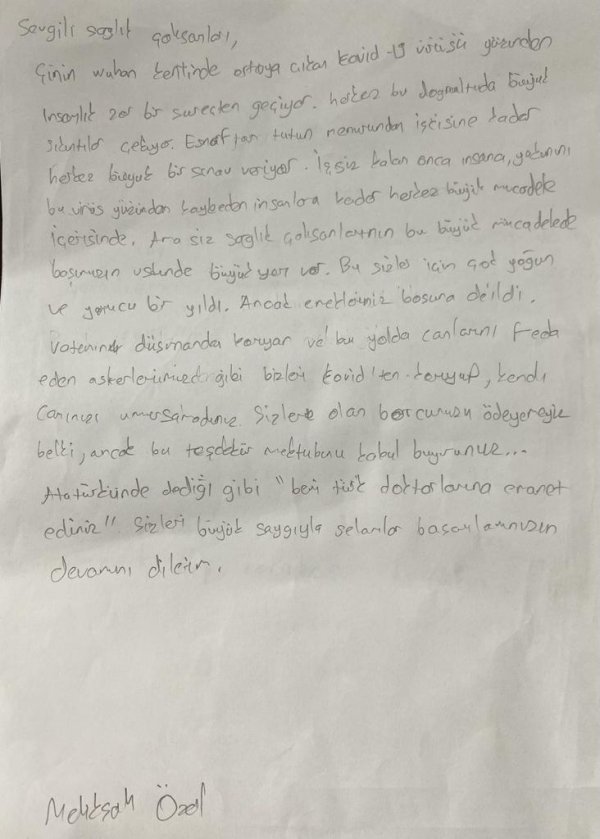 Sevgili sağlık çalışanları,
Çinin wuhan kentinde ortaya çıkan kovid-19 virüsü yüzünden
İnsanlık zor bir süreçten geçiyor. herkez bu doğrultuda büyük
sıkıntılar çekiyor. Esnaftan tutun memurundan işçisine kadar
herkez büyük bir sınav veriyor. İşsiz kalan onca insana, yakınını
bu virüs yüzünden kaybeden insanlara kadar herkez büyük mücadele
içerisinde. Ama siz sağlık çalışanlarının bu büyük mücadelede
başımızın üstünde büyük yeri var. Bu sizler için çok yoğun
ve yorucu bir yıldı. Ancak emekleriniz boşuna değildi.
Vatanını düşmandan koruyan ve bu yolda canlarını feda
eden askerlerimiz gibi bizleri kovid'ten koruyup, kendi
Canınızı umursamadınız. Sizlere olan borcumuzu ödeyemeyiz
belki, ancak bu teşekkür mektubunu kabul buyurunuz...
Atatürkünde dediği gibi "beni türk doktorlarına emanet
ediniz" Sizleri büyük saygıyla selamlar başarılarınızın
devamını dilerim.
Özel